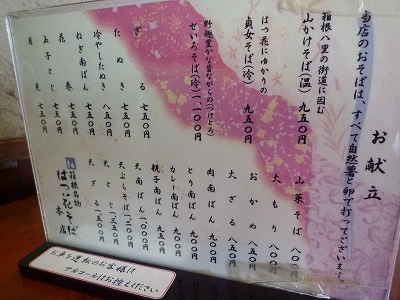 お献立
当店のおそばは、すべて自然薯と卵で打ってございます。
箱根八里の街道に因む
山かけそば(温) 九五〇円
はつ花にゆかりの
貞女そば(冷) 九五〇円
野趣豊かな昔ながらの(つけとろ)
せいろそば(冷) 一、一〇〇円
ざる 七五〇円
たぬき 七五〇円
冷やしたぬき 七五〇円
ねぎ南ばん 七五〇円
花巻 七五〇円
玉子とじ 七五〇円
月見 七五〇円
山菜そば 八〇〇円
大もり 八〇〇円
おかめ 八五〇円
大ざる 八五〇円
肉南ばん 九〇〇円
とり南ばん 九〇〇円
カレー南ばん 九五〇円
親子南ばん 九五〇円
天南ばん 一〇〇〇円
天ぷらそば 一二五〇円
天とじ 一三五〇円
天ざる 一五〇〇円
箱根名物
はつ花そば
本店
お車を運転のお客様は
アルコールはお控えください